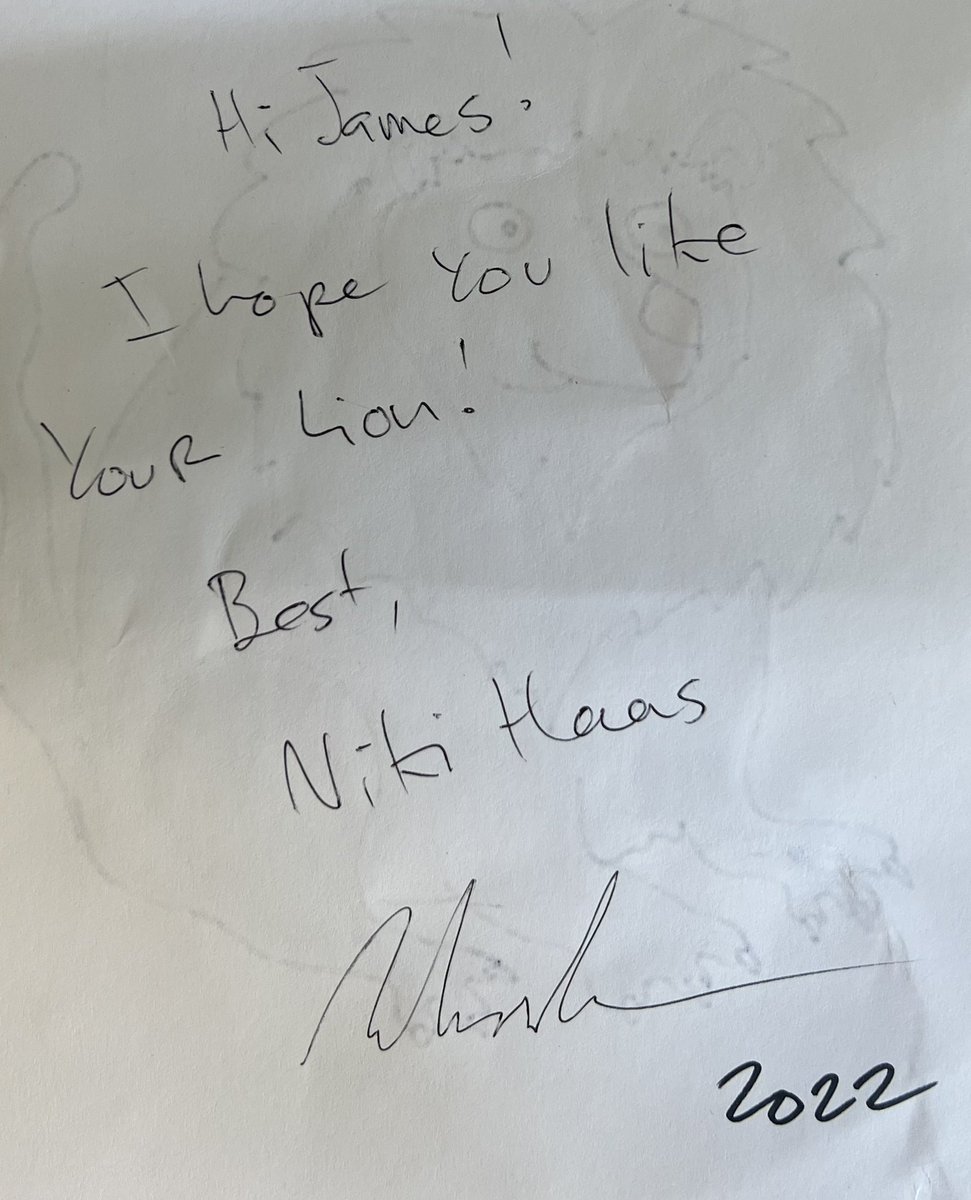 Hi James!
I hope you like
your Lion!
Best,
Niki Haas
2022